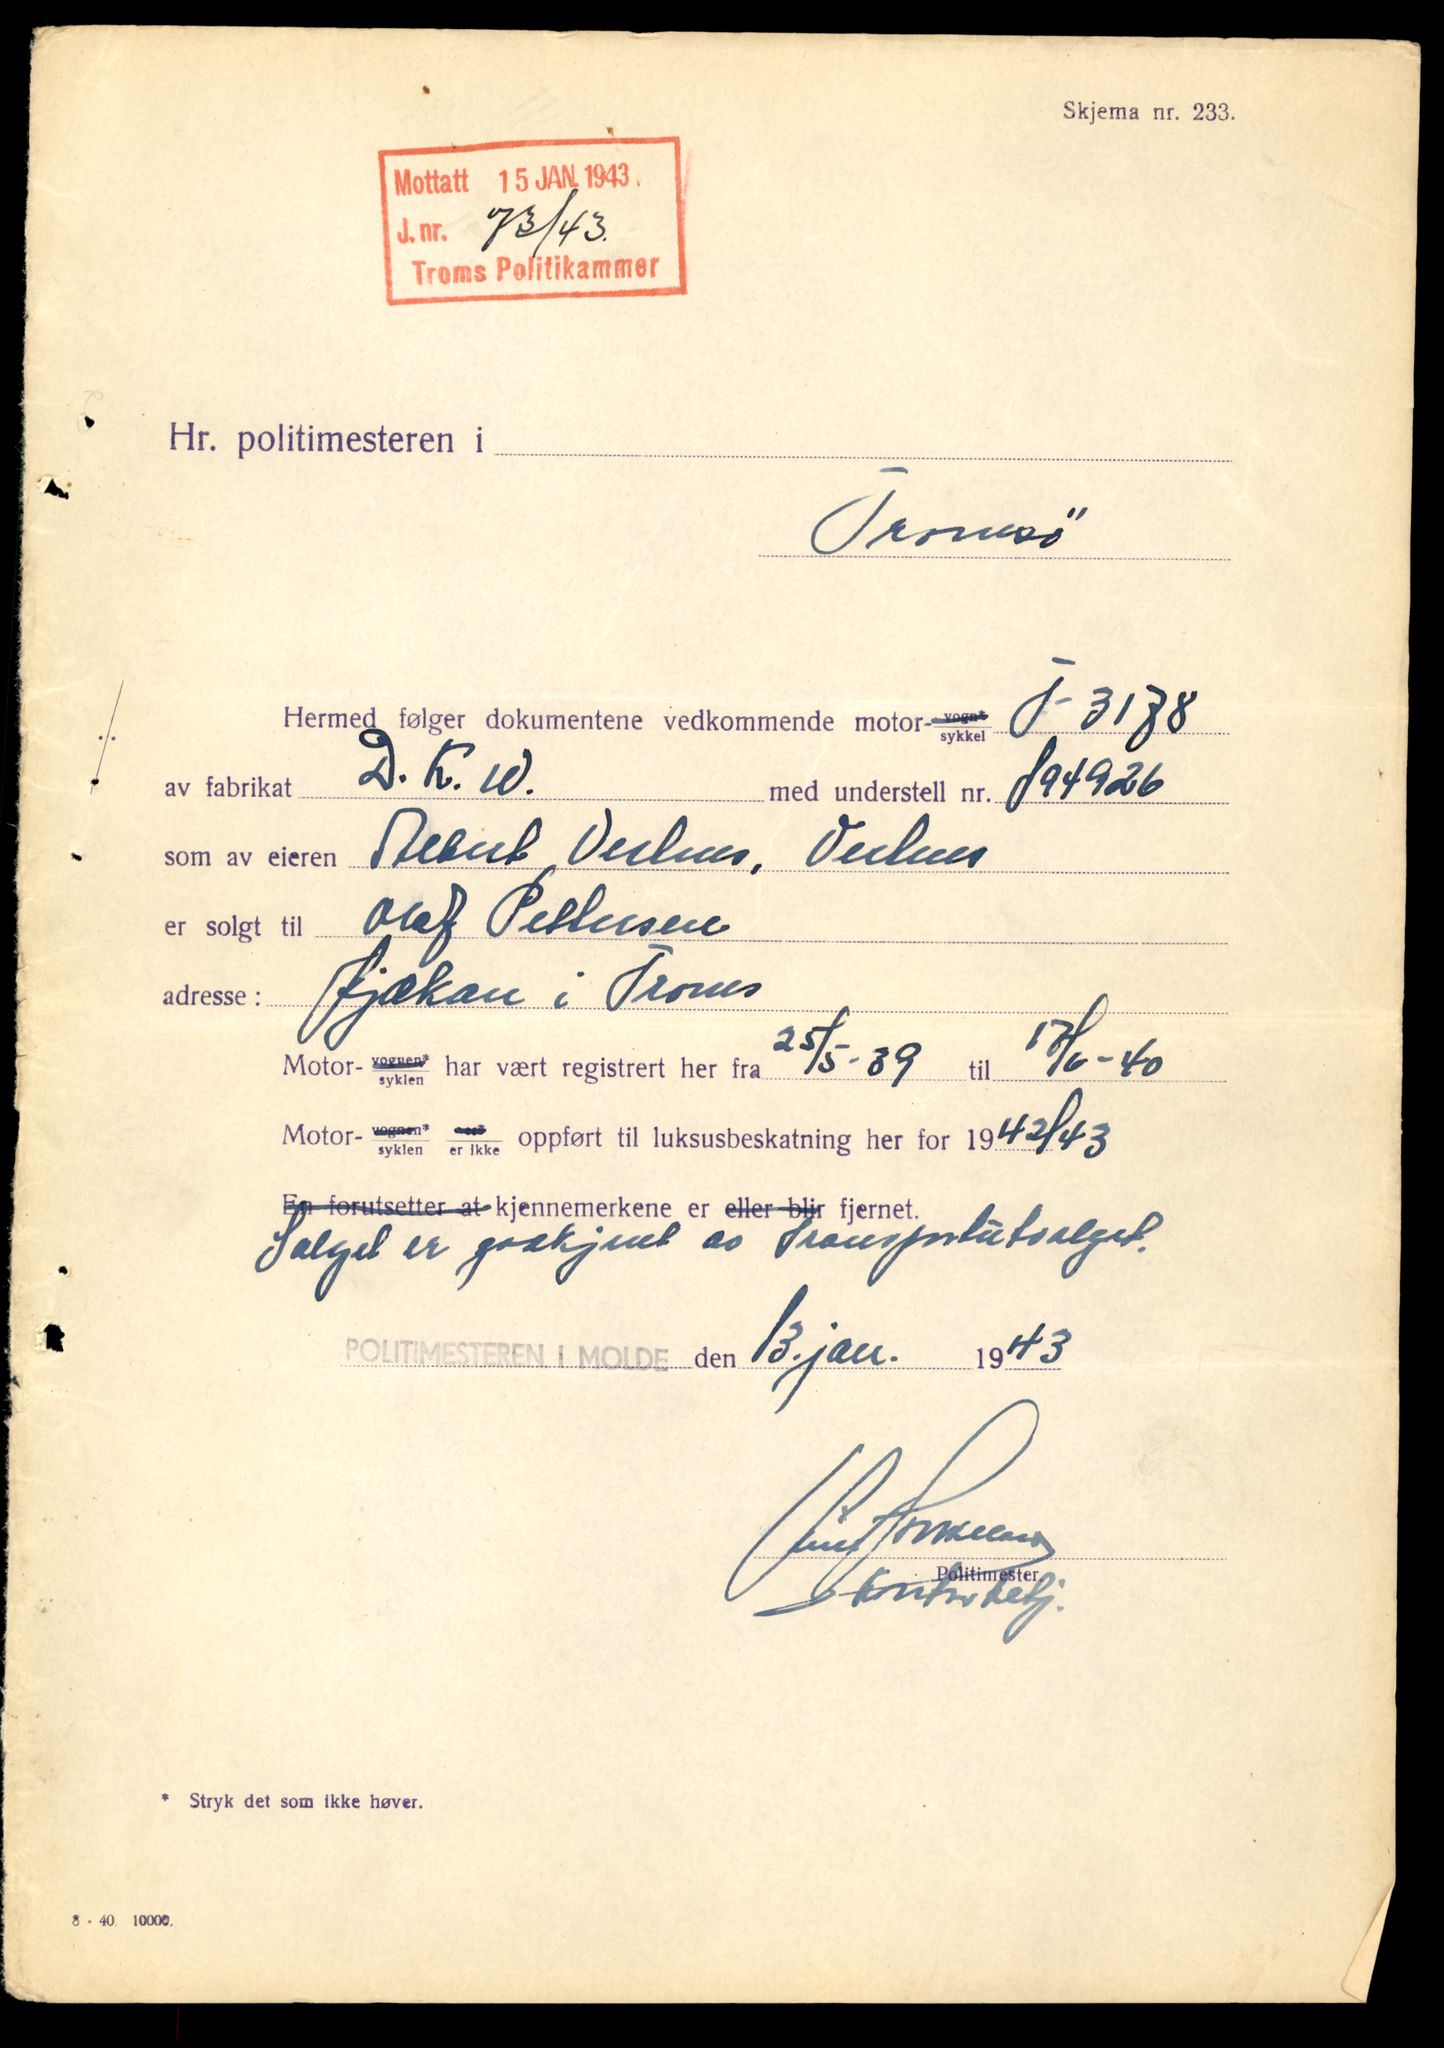 Skjema nr. 233.
Mottatt 15 JAN. 1943.
J. nr. 73/43.
Troms Politikammer
Hr. politimesteren i
Tromsö
Hermed følger dokumentene vedkommende motor-vogn* sykkel T-3178
av fabrikat D. K. W. med understell nr. 894926
som av eieren Vestnes, Vestnes
er solgt til Olaf Pettersen
adresse: i Troms
Motor-vognen* syklen har vært registrert her fra 25/5-39 til 17/6-40
Motor-vognen* syklen er* er ikke oppført til luksusbeskatning her for 1942/43
En forutsetter at kjennemerkene er eller blir fjernet.
Salget er godkjent av Transportutvalget.
POLITIMESTEREN I MOLDE den 13. jan. 1943
Politimester
kontorbetj.
* Stryk det som ikke høver.
8 - 40. 10000.